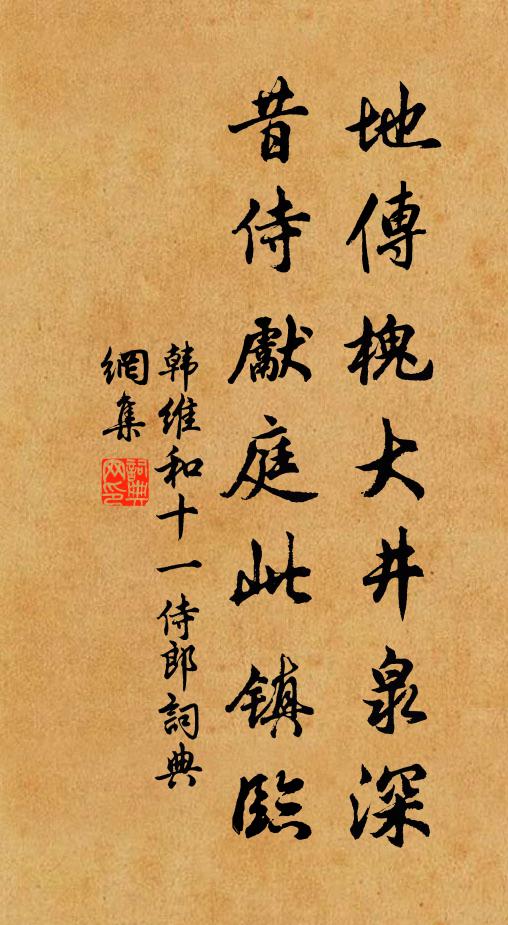 地傳槐大井泉深
昔侍獻庭此鎮臨
韩維和十一侍郎詞典
網集
詞典网印